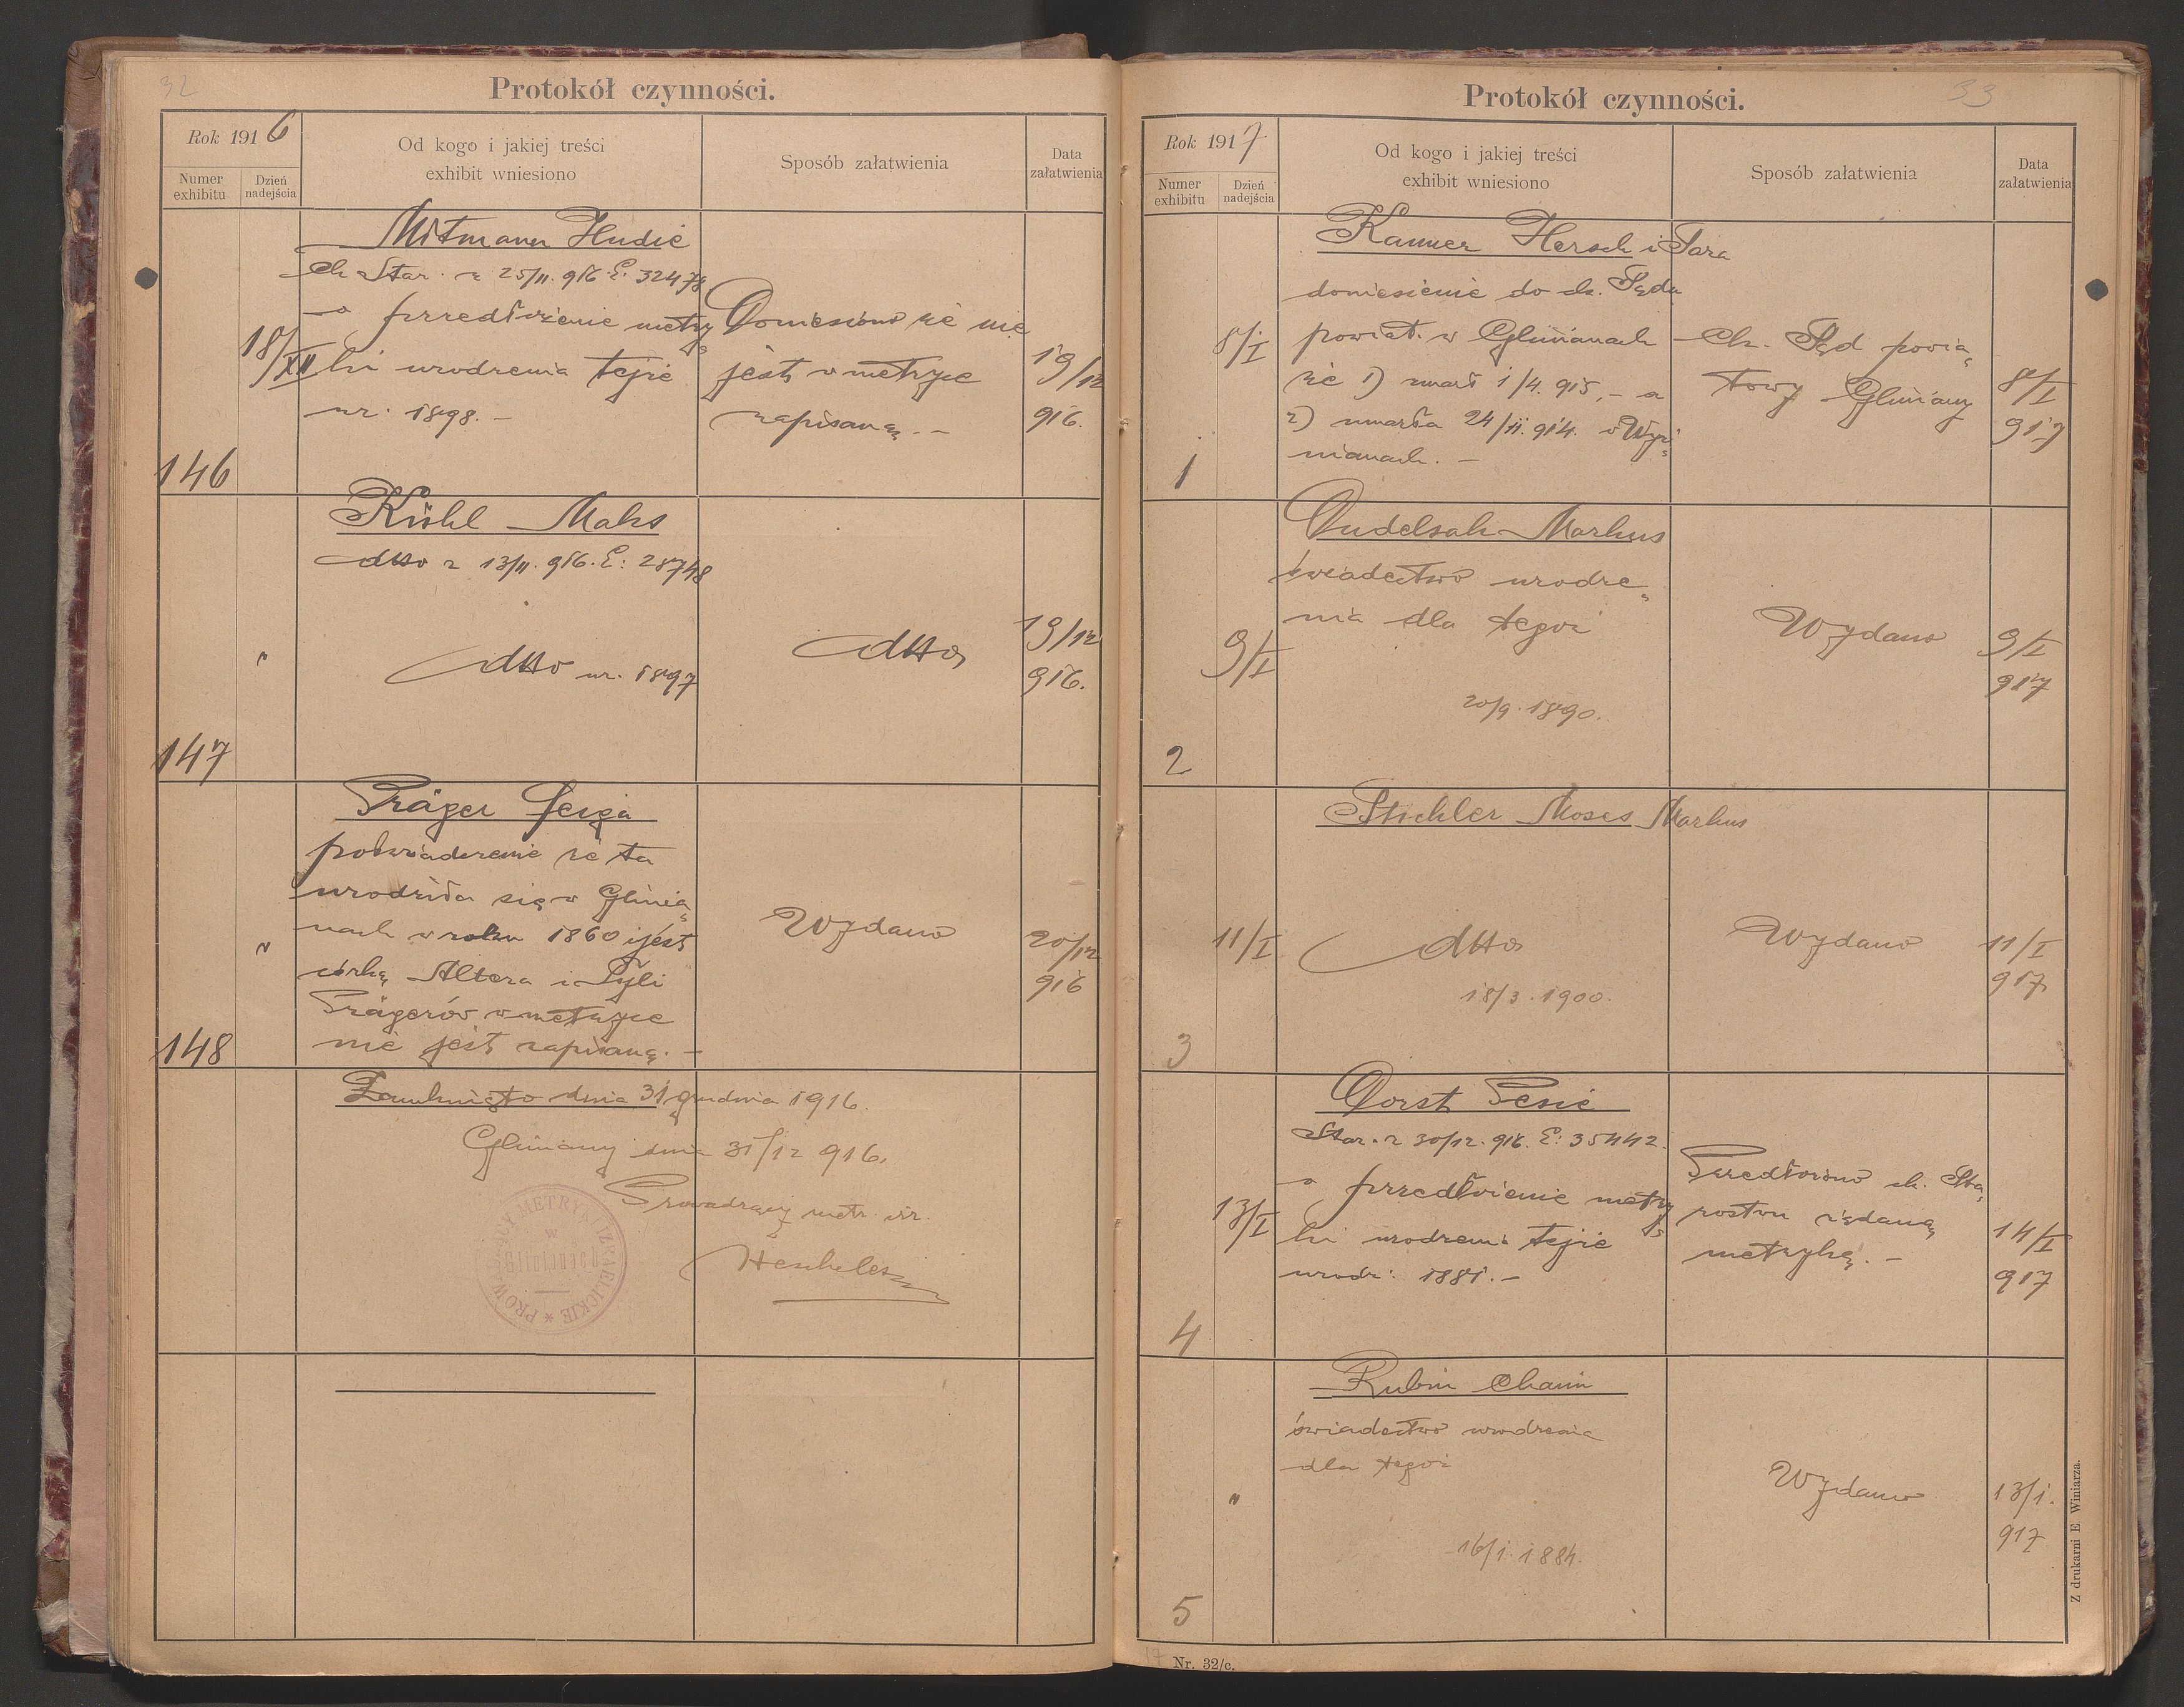 32
Protokół czynności.
Rok 1916
Numer exhibitu
Dzień nadejścia
Od kogo i jakiej treści
exhibit wniesiono
Sposób załatwienia
Data
załatwienia
146
18/XII
Mitmann Hudie
Ck Star. z 25/11. 916 L. 32478
o przedłożenie metry
ki urodzenia tejże
ur. 1898. –
Doniesiono że nie
jest w metryce
zapisaną. –
19/12
916.
147
"
Kühl Maks
dtto z 13/11. 916. L: 28748
dtto ur. 1897
dtto
19/12
916.
148
"
Präger Feiga
poświadczenie że ta
urodziła się w Glinia
nach w roku 1860 i jest
córką Altera i Syli
Prägerów w metryce
nie jest zapisaną. –
Wydano
20/12
916
Zamknięto dnia 31 grudnia 1916.
Gliniany dnia 31/12 916.
Prowadzący metr. izr.
Hescheles
PROWADZĄCY METRYKI IZRAELICKIE
w
Glinianach
33
Protokół czynności.
Rok 1917
Numer exhibitu
Dzień nadejścia
Od kogo i jakiej treści
exhibit wniesiono
Sposób załatwienia
Data
załatwienia
1
8/I
Kanner Hersch i Sara
doniesienie do ck. Sądu
powiat. w Glinianach
że 1) zmarł 1/4. 915, – a
2) umarła 24/11. 914. w Wyż
nianach. –
Ck. Sąd powia
towy Gliniany
8/I
917
2
9/I
Dudelsak Markus
świadectwo urodze
nia dla tegoż
20/9. 1890.
Wydano
9/I
917
3
11/I
Stickler Moses Markus
dtto
18/3. 1900.
Wydano
11/I
917
4
13/I
Dorst Pesie
Star. z 30/12. 916. L: 35442.
o przedłożenie metry
ki urodzenia tejże
urodz: 1881. –
Przedłożono ck. Sta
rostwu żądaną
metrykę. –
14/I
917
5
"
Rubin Chaim
świadectwo urodzenia
dla tegoż
16/1. 1884.
Wydano
13/1.
917
Z drukarni E Winiarza.
17
Nr. 32/c.